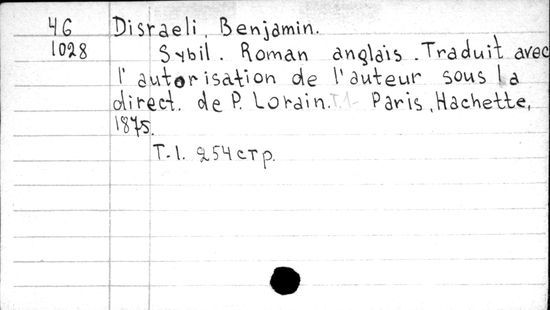 4G Disraeli, Benjamin.
1028 Sybil. Roman anglais. Traduit avec
l'autorisation de l'auteur sous la
direct. de P. Lorain. T.1- Paris, Hachette,
1875.
T.1. 254 стр.